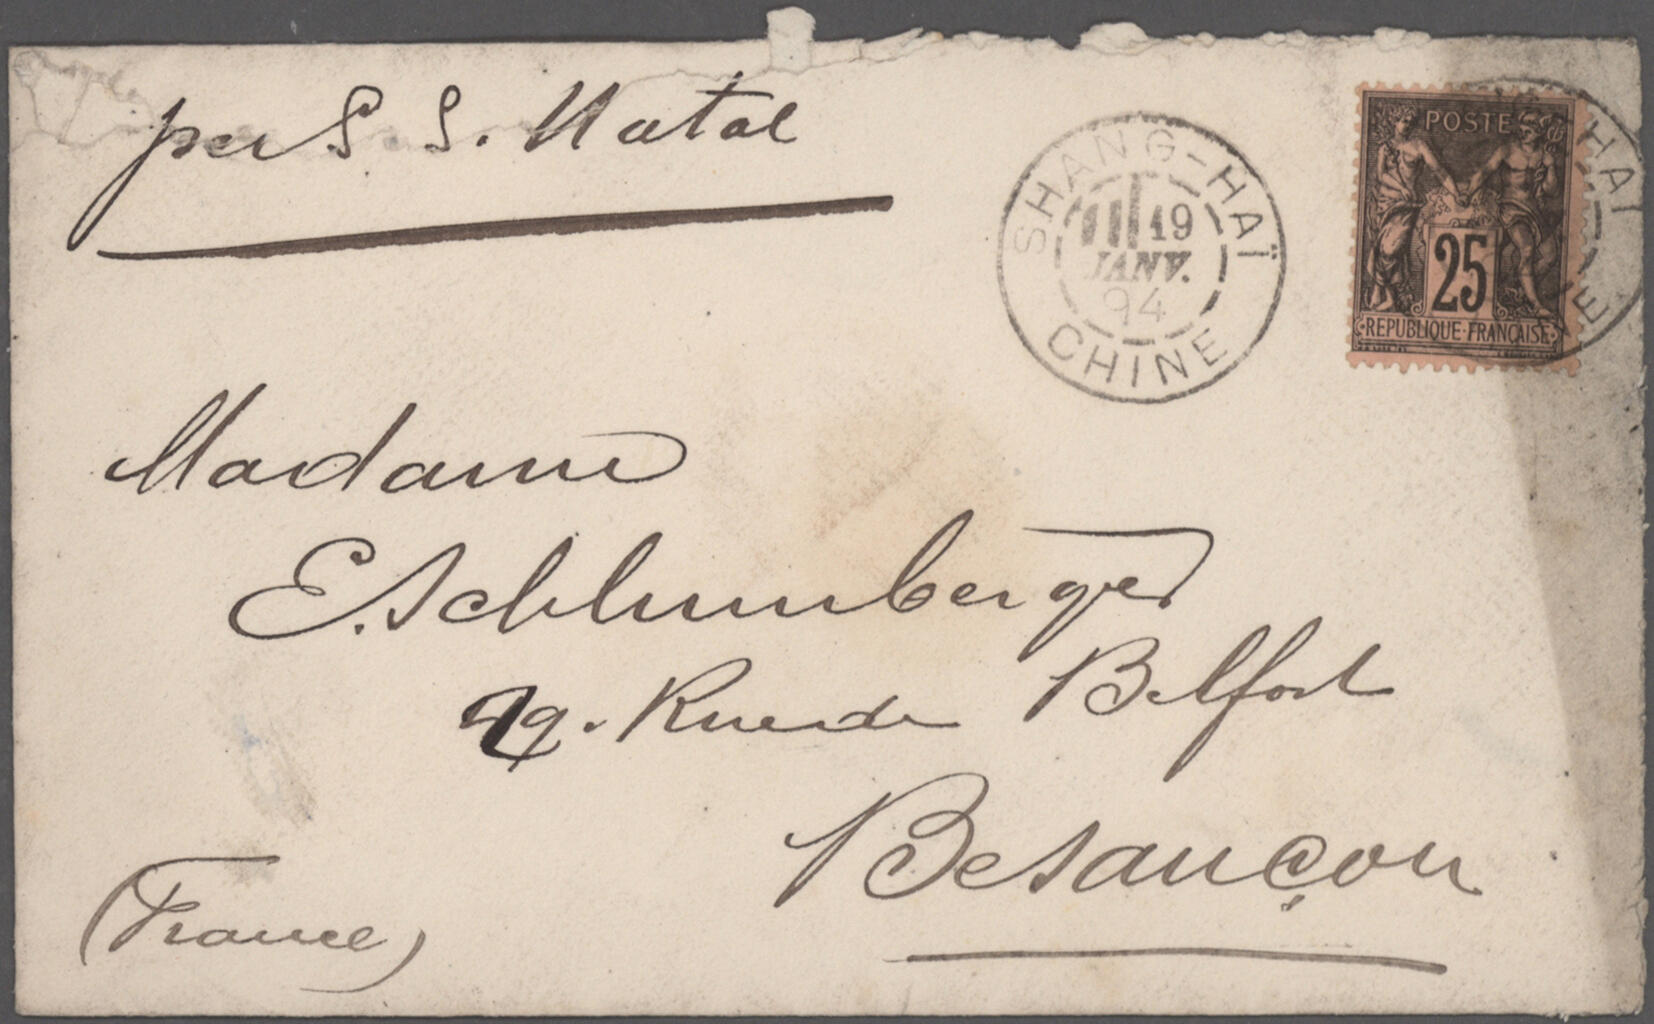 per S. S. Natal
SHANG-HAÏ
19
JANV.
94
CHINE
POSTE
25
REPUBLIQUE FRANÇAISE
HAI
NE
Madame
E. Schlumberger
Rue de Belfort
Besançon
(France)